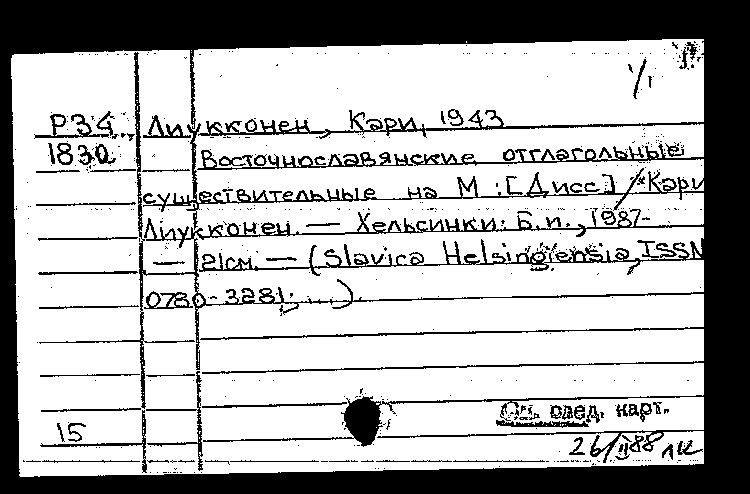 1/1
Р34 Лиукконен, Кари, 1943
1830 Восточнославянские отглагольные
существительные на М : [Дисс] / Кари
Лиукконен. — Хельсинки: Б.и., 1987-
— 21см. — (Slavica Helsingiensia, ISSN
0780-3281; ...).
См. след. карт.
15
26/II 88 ЛК